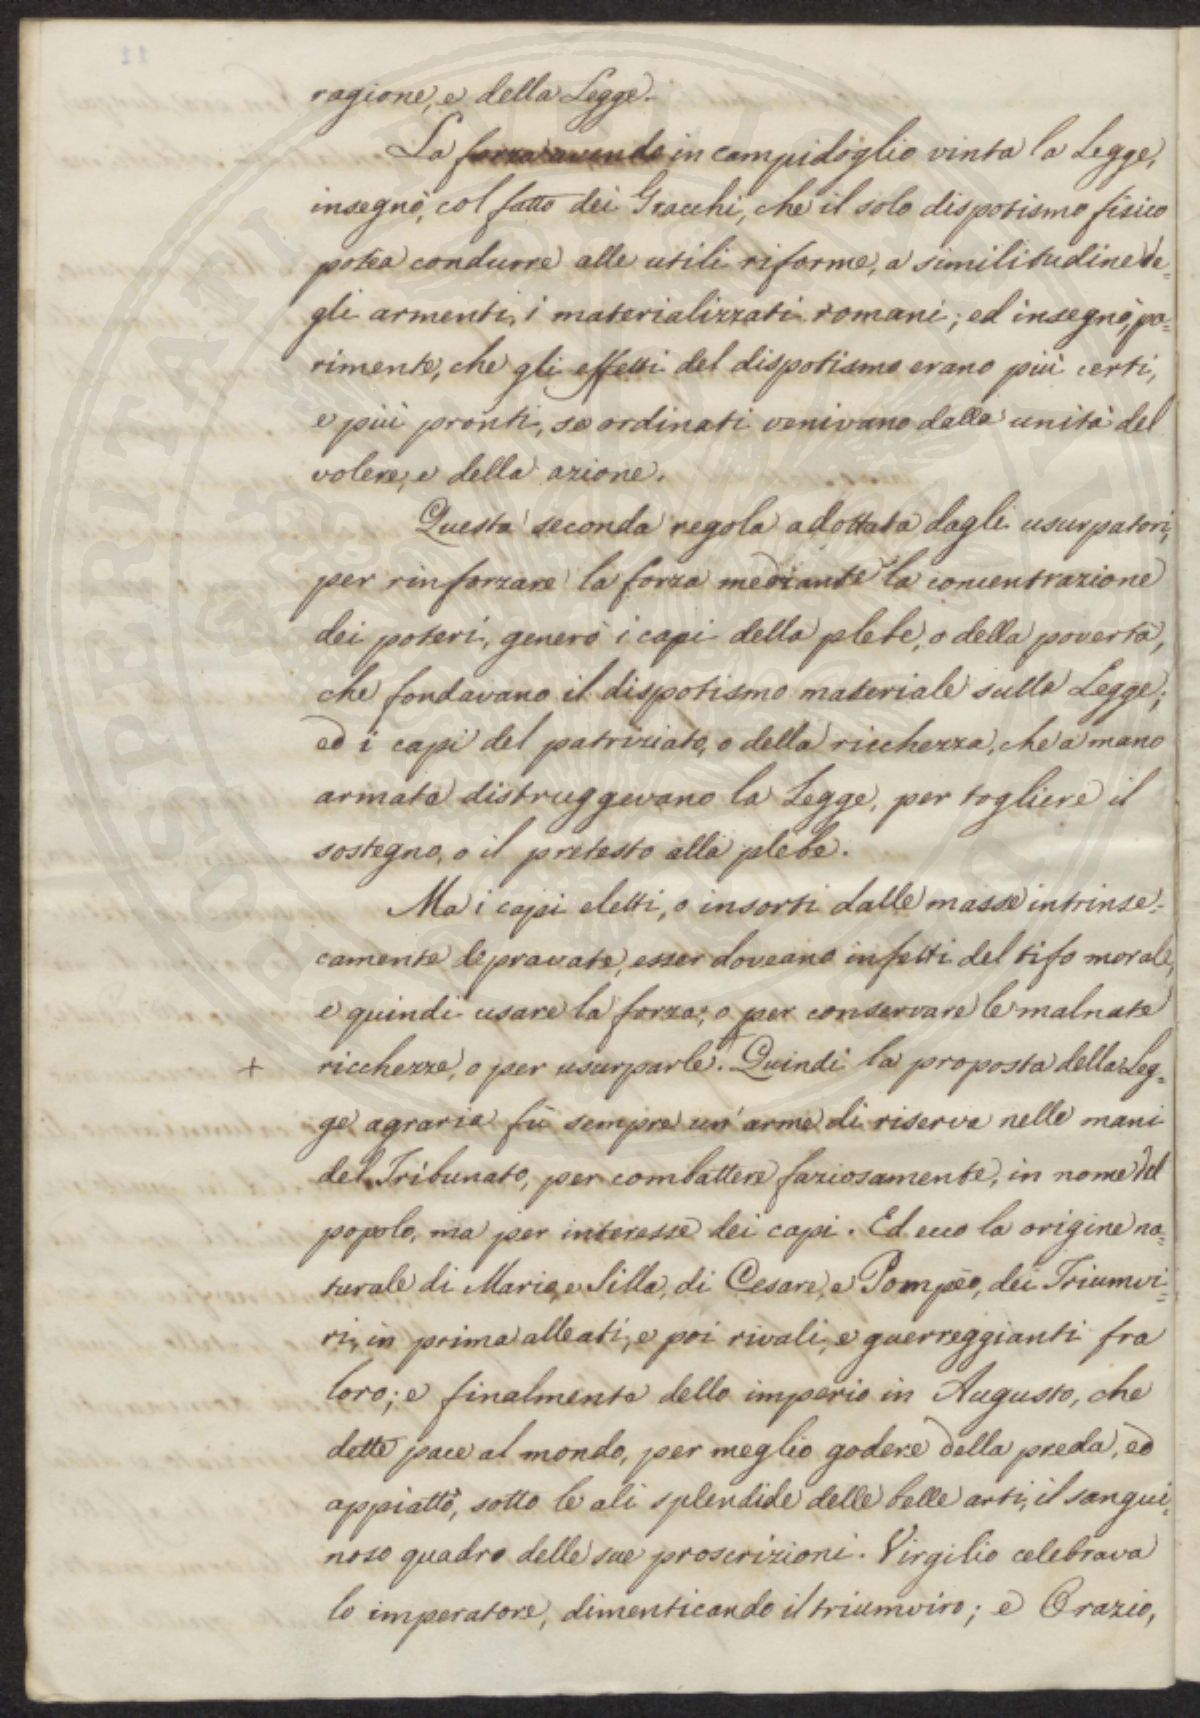 ragione, e della Legge.
La forza avendo in campidoglio vinta la Legge,
insegnò, col fatto dei Gracchi, che il solo dispotismo fisico
potea condurre alle utili riforme, a similitudine de=
gli armenti, i materializzati romani; ed insegnò, pa=
rimente, che gli effetti del dispotismo erano più certi,
e più pronti, se ordinati venivano dalla unità del
volere, e della azione.
Questa seconda regola adottata dagli usurpatori,
per rinforzare la forza mediante la concentrazione
dei poteri, generò i capi della plebe, o della povertà,
che fondavano il dispotismo materiale sulla Legge;
ed i capi del patriziato, o della ricchezza, che a mano
armata distruggevano la Legge, per togliere il
sostegno, o il pretesto alla plebe.
Ma i capi eletti, o insorti dalle masse intrinse=
camente depravate, esser doveano infetti del tifo morale,
e quindi usare la forza, o per conservare le malnate
+ ricchezze, o per usurparle. Quindi la proposta della Leg=
ge agraria fù sempre un' arme di riserva nelle mani
del Tribunato, per combattere faziosamente, in nome del
popolo, ma per interesse dei capi. Ed ecco la origine na=
turale di Mario, e Silla, di Cesare, e Pompeo, dei Triumvi=
ri, in prima alleati, e poi rivali, e guerreggianti fra
loro; e finalmente dello imperio in Augusto, che
dette pace al mondo, per meglio godere della preda, ed
appiattò, sotto le ali splendide delle belle arti, il sangui=
noso quadro delle sue proscrizioni. Virgilio celebrava
lo imperatore, dimenticando il triumviro; e Orazio,